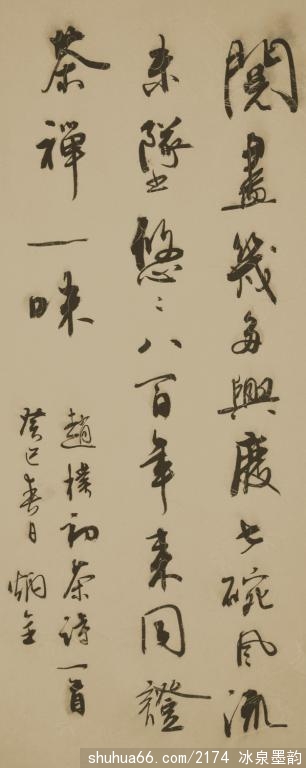 閱盡幾多興廢七碗風流
未墜悠々八百年來同證
茶禪一味
趙樸初茶詩一首
癸巳春日
shuhua66.com/2174 冰泉墨韵